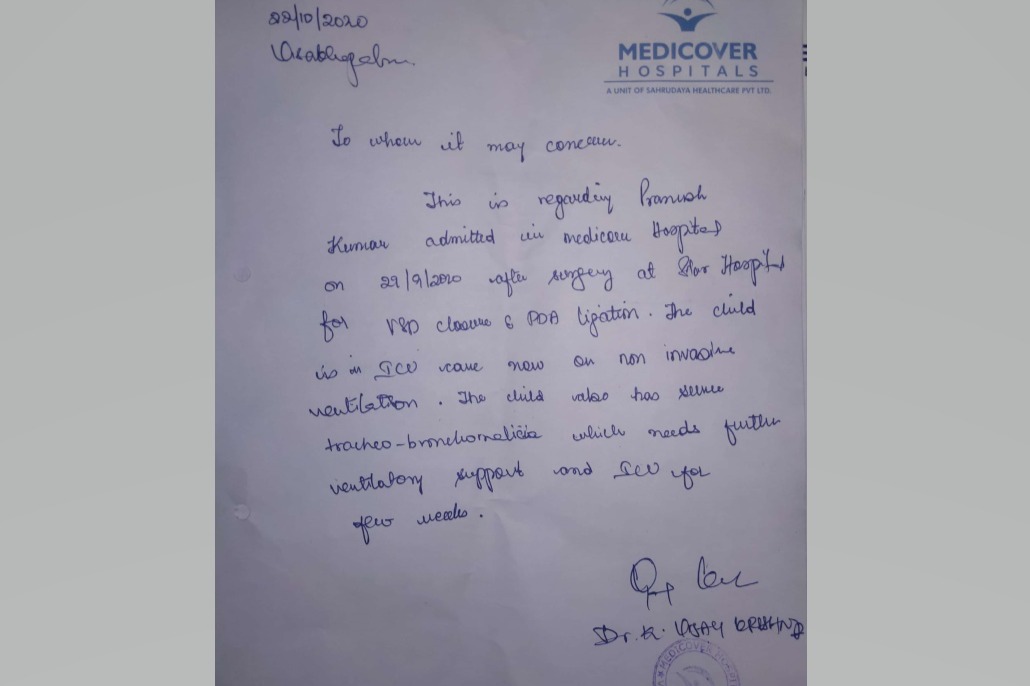 22/10/2020
MEDICOVER
HOSPITALS
A UNIT OF SAHRUDAYA HEALTHCARE PVT LTD.
To whom it may concern.
This is regarding Pranush
Kumar admitted in medicover Hospital
on 29/9/2020 after surgery at Star Hospital
for VSD closure & PDA ligation. The child
is in ICU care now on non invasive
ventilation. The child also has severe
tracheo-bronchomalicia which needs further
ventilatory support and ICU for
few weeks.
Dr. K. VIJAY KRISHNA
MEDICOVER HOSPI